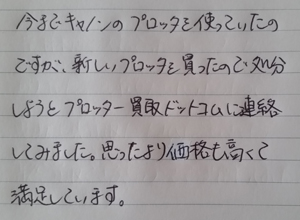 今までキャノンのプロッタを使っていたの
ですが、新しいプロッタを買ったので処分
しようとプロッター買取ドットコムに連絡
してみました。思ったより価格も高くて
満足しています。